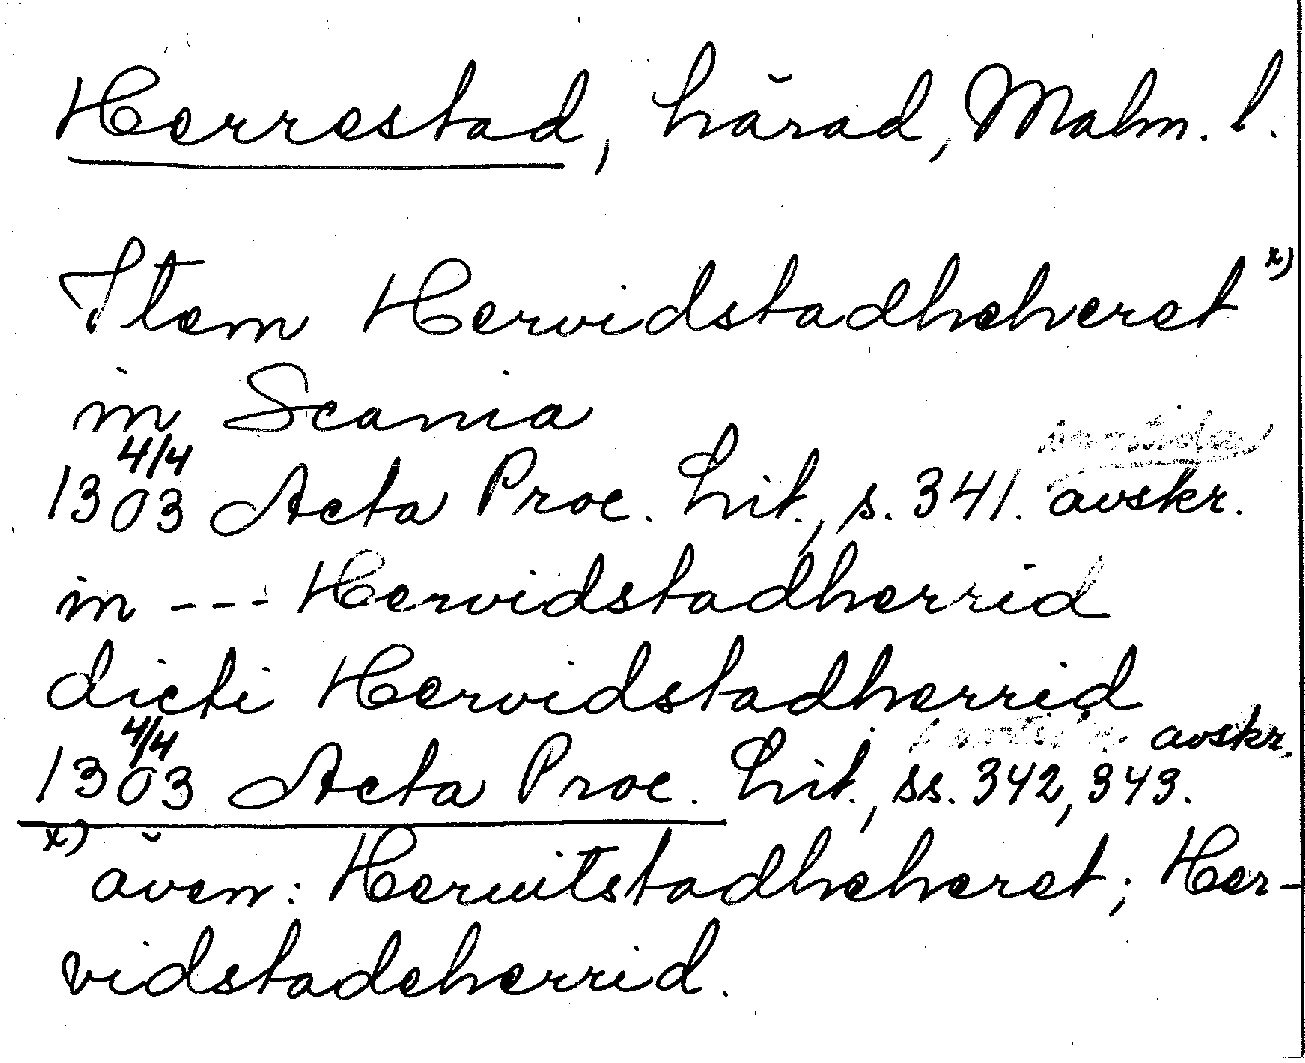 Herrestad, härad, Malm. l.
Item Hervidstadheheret x)
in Scania
samtida
1303 4/4 Acta Proc. Lit., s. 341. avskr.
in --- Hervidstadherrid
dicti Hervidstadherrid
1303 4/4 Acta Proc. Lit., ss. 342, 343. avskr.
x) även: Herwitstadheheret; Her-
vidstadeherrid.